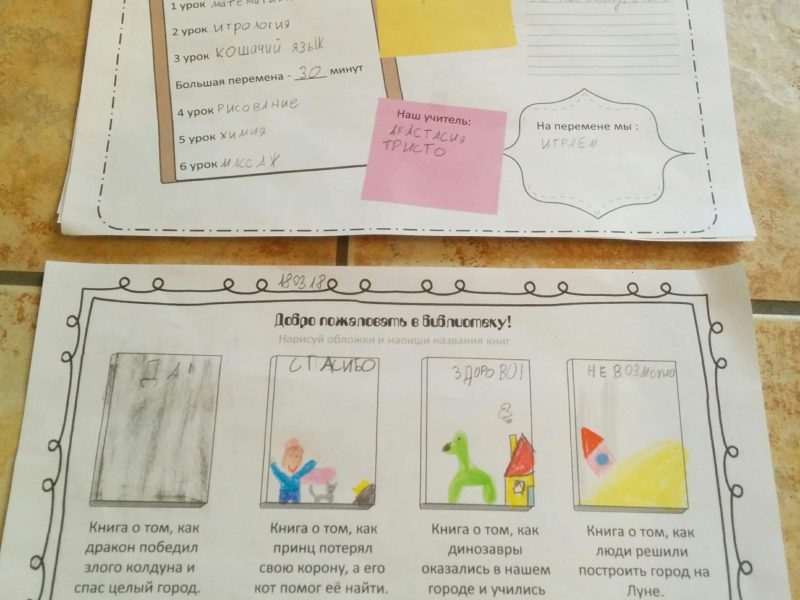 1 урок математика
2 урок игрология
3 урок кошачий язык
Большая перемена - 30 минут
4 урок рисование
5 урок химия
6 урок массаж
Наш учитель:
АНАСТАСИЯ
ТРИСТО
На перемене мы :
ИГРАЕМ
180318
Добро пожаловать в библиотеку!
Нарисуй обложки и напиши названия книг
ДА!
СПАСИБО
ЗДОРОВО!
НЕВОЗМОЖНО
Книга о том, как
дракон победил
злого колдуна и
спас целый город.
Книга о том, как
принц потерял
свою корону, а его
кот помог её найти.
Книга о том, как
динозавры
оказались в нашем
городе и учились
Книга о том, как
люди решили
построить город на
Луне.